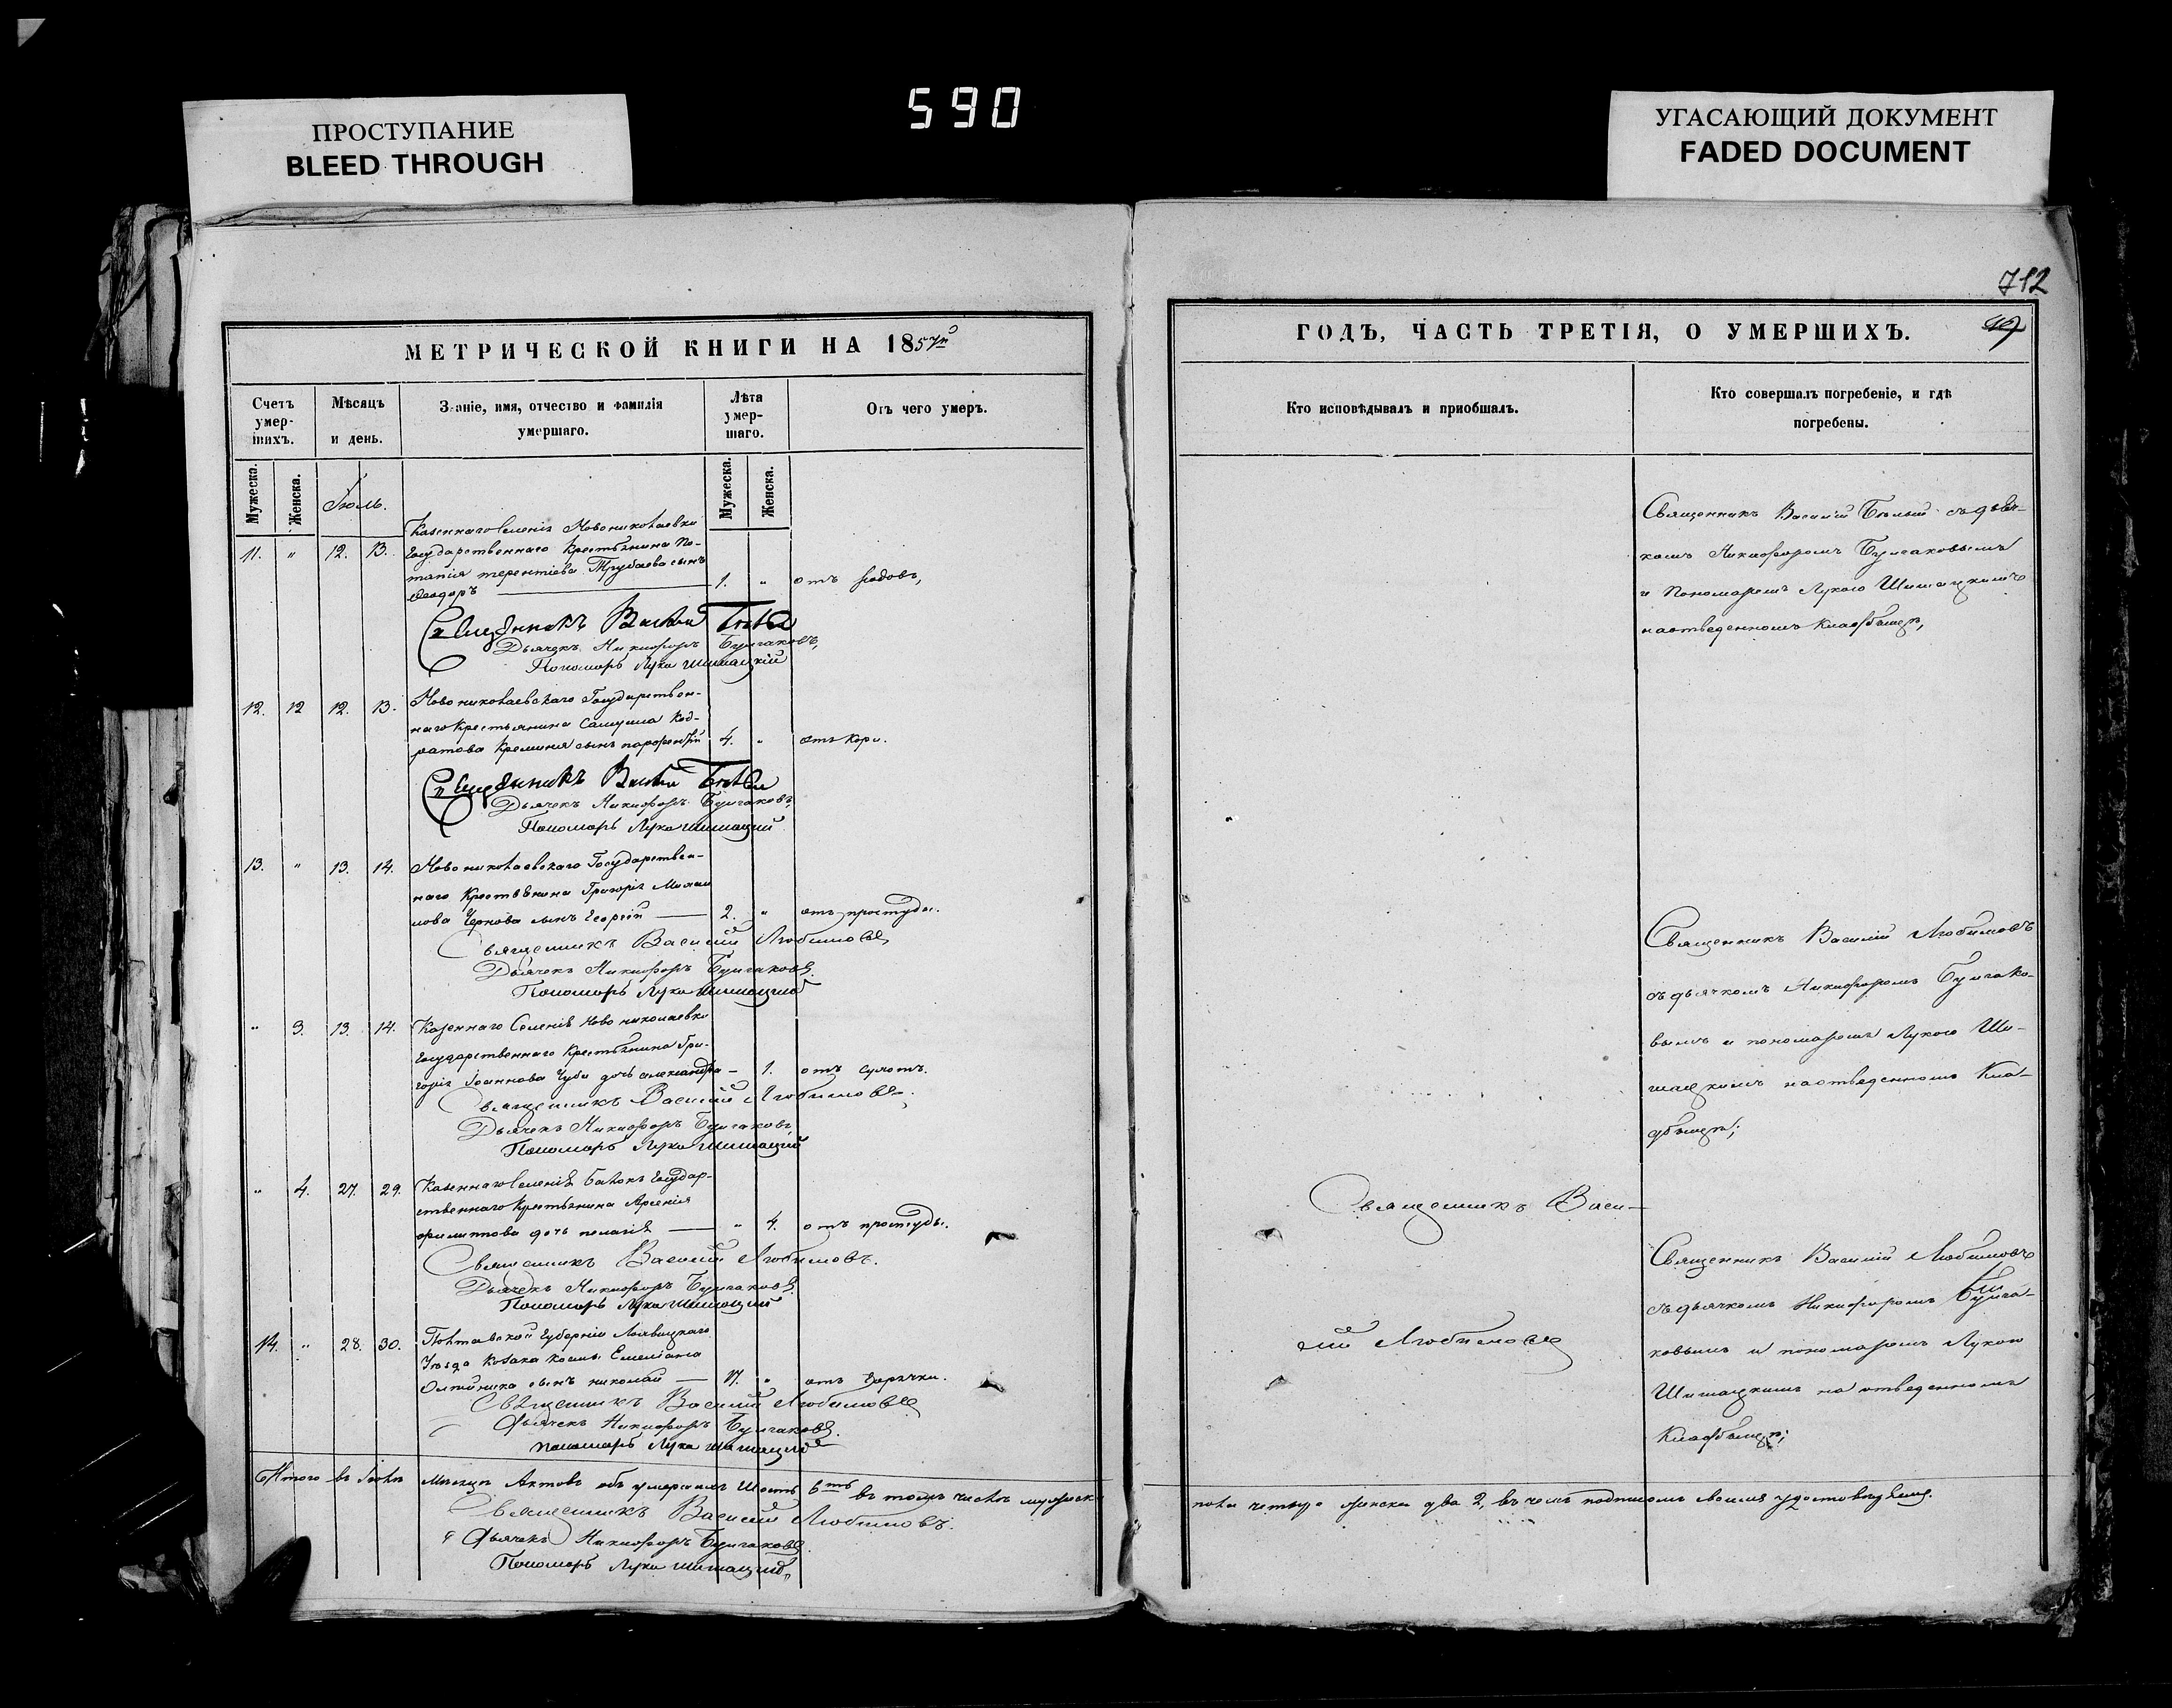 590
ПРОСТУПАНИЕ
BLEED THROUGH
УГАСАЮЩИЙ ДОКУМЕНТ
FADED DOCUMENT
МЕТРИЧЕСКОЙ КНИГИ НА 1857й
Счетъ умер-шихъ.
Мѣсяцъ и день.
Званіе, имя, отчество и фамилія умершаго.
Лѣта умер-шаго.
Отъ чего умеръ.
Мужеска.
Женска.
Іюль.
Мужеска.
Женска.
Казеннаго Селенія Новониколаевки
11. " 12. 13. Государственнаго Крестьянина По-
тапія терентіева Трубаева сынъ
Ѳеодоръ 1. " отъ родовъ,
Священникъ Василій Бѣлый
Дьячекъ Никифоръ Булгаковъ,
Пономарь Лука Шишацкій
12. 12 12. 13. Новониколаевскаго Государствен-
наго Крестьянина Самуила Код-
ратова Кремина сынъ парфентій 4. " отъ Кори.
Священникъ Василій Бѣлый
Дьячекъ Никифоръ Булгаковъ,
Пономарь Лука Шишацкий
13. " 13. 14. Новониколаевскаго Государствен-
наго Крестьянина Григорія
Чернова сынъ Георгій 2. " отъ простуды.
Священникъ Василий Любимовъ
Дьячекъ Никифоръ Булгаковъ.
Пономарь Лука Шишацкий
" 3. 13. 14. Казеннаго Селенія Новониколаевки
Государственнаго Крестьянина Гри-
горія Іоаннова Чуба дочь александра 1. отъ сухотъ.
Священникъ Василий Любимовъ.
Дьячекъ Никифоръ Булгаковъ,
Пономарь Лука Шишацкий
" 4. 27. 29. Казеннаго Селенія Балокъ Государ-
ственнаго Крестьянина Арсенія
филиппова дочь пелагія " 4. отъ простуды.
Священникъ Василий Любимовъ.
Дьячекъ Никифоръ Булгаковъ.
Пономарь Лука Шишацкий
14. " 28. 30. Полтавской Губерніи
Уѣзда Козака космы Емеліана
сынъ николай 17. " отъ Горячки.
Священникъ Василий Любимовъ
Дьячекъ Никифоръ Булгаковъ.
пономарь Лука Шишацкий
Итого въ Іюлѣ Мѣсяцѣ Актовъ объ умершихъ Шесть 6ть въ томъ числѣ мужеска
Священникъ Василий Любимовъ.
Дьячекъ Никифоръ Булгаковъ.
Пономарь Лука Шишацкий
712
ГОДЪ, ЧАСТЬ ТРЕТІЯ, О УМЕРШИХЪ.
Кто исповѣдывалъ и пріобщалъ.
Кто совершалъ погребеніе, и гдѣ погребены.
Священникъ Василій Бѣлый съ дьяч-
комъ Никифоромъ Булгаковымъ
и Пономаремъ Лукою Шишацкимъ
на отведенномъ Кладбищѣ,
Священникъ Василій Любимовъ
съ дьячкомъ Никифоромъ Булгако-
вымъ и пономаремъ Лукою Ши-
шацкимъ на отведенномъ Кла-
дбищѣ;
Священникъ Васи-
лій Любимовъ
Священникъ Василій Любимовъ
съ дьячкомъ Никифоромъ Булга-
ковымъ и пономаремъ Лукою
Шишацкимъ на отведенномъ
Кладбищѣ;
пола четыре женска два 2, въ чемъ подписомъ своимъ удостовѣряемъ.